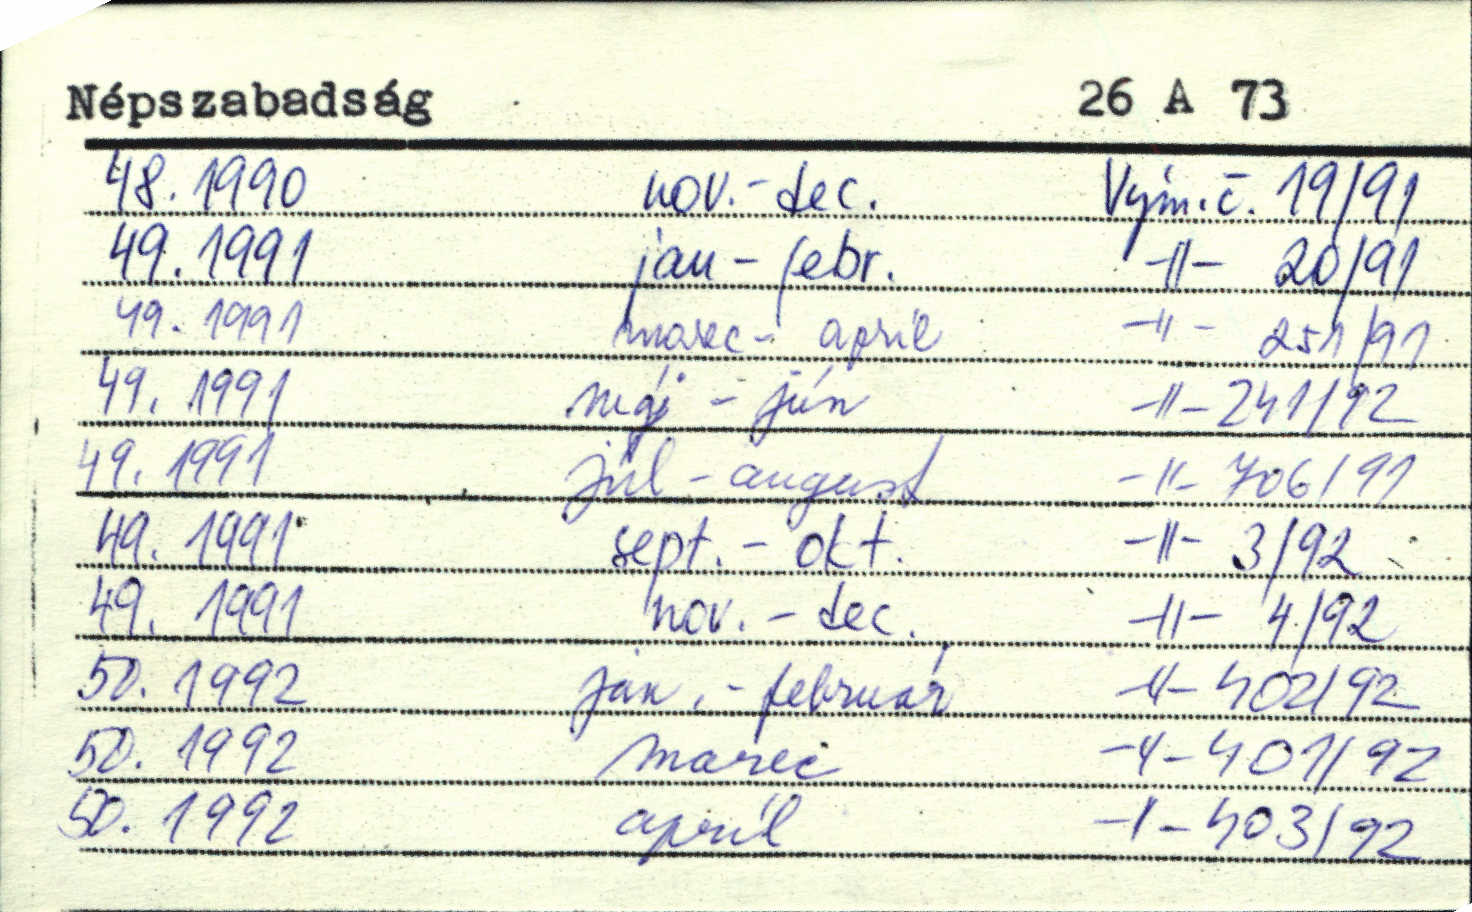 Népszabadság 26 A 73
48. 1990 nov. - dec. Vým. č. 19/91
49. 1991 jan - febr. -||- 20/91
49. 1991 marec - apríl -||- 251/91
49. 1991 máj - jún -||- 241/92
49. 1991 júl - august -||- 706/91
49. 1991 sept. - okt. -||- 3/92
49. 1991 nov. - dec. -||- 4/92
50. 1992 jan. - február -||- 402/92
50. 1992 marec -||- 401/92
50. 1992 apríl -||- 403/92